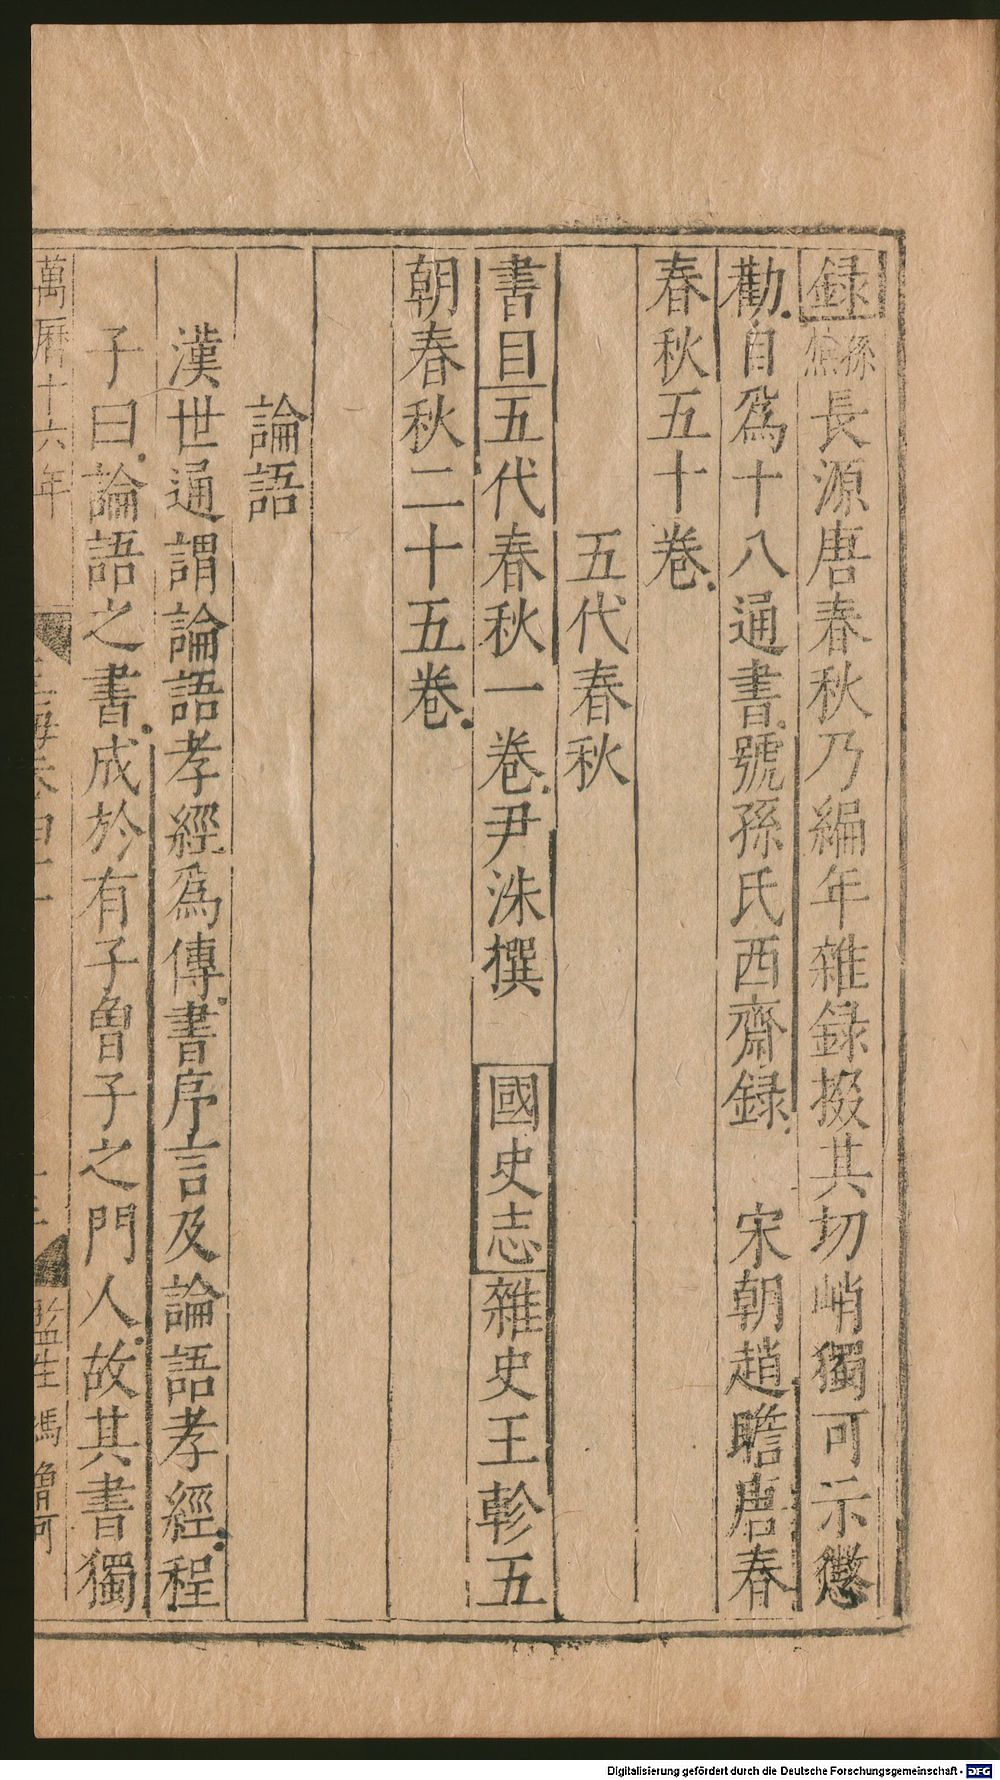 録孫
樵長源唐春秋乃編年雜録掇其切峭獨可示懲
勸自爲十八通書號孫氏西齋録　宋朝趙瞻唐春
春秋五十卷
五代春秋
書目五代春秋一卷尹洙撰　國史志雜史王軫五
朝春秋二十五卷
論語
漢世通謂論語孝經爲傳書序言及論語孝經程
子曰論語之書成於有子曾子之門人故其書獨
萬曆十六年
監生馮
Digitalisierung gefördert durch die Deutsche Forschungsgemeinschaft - DFG